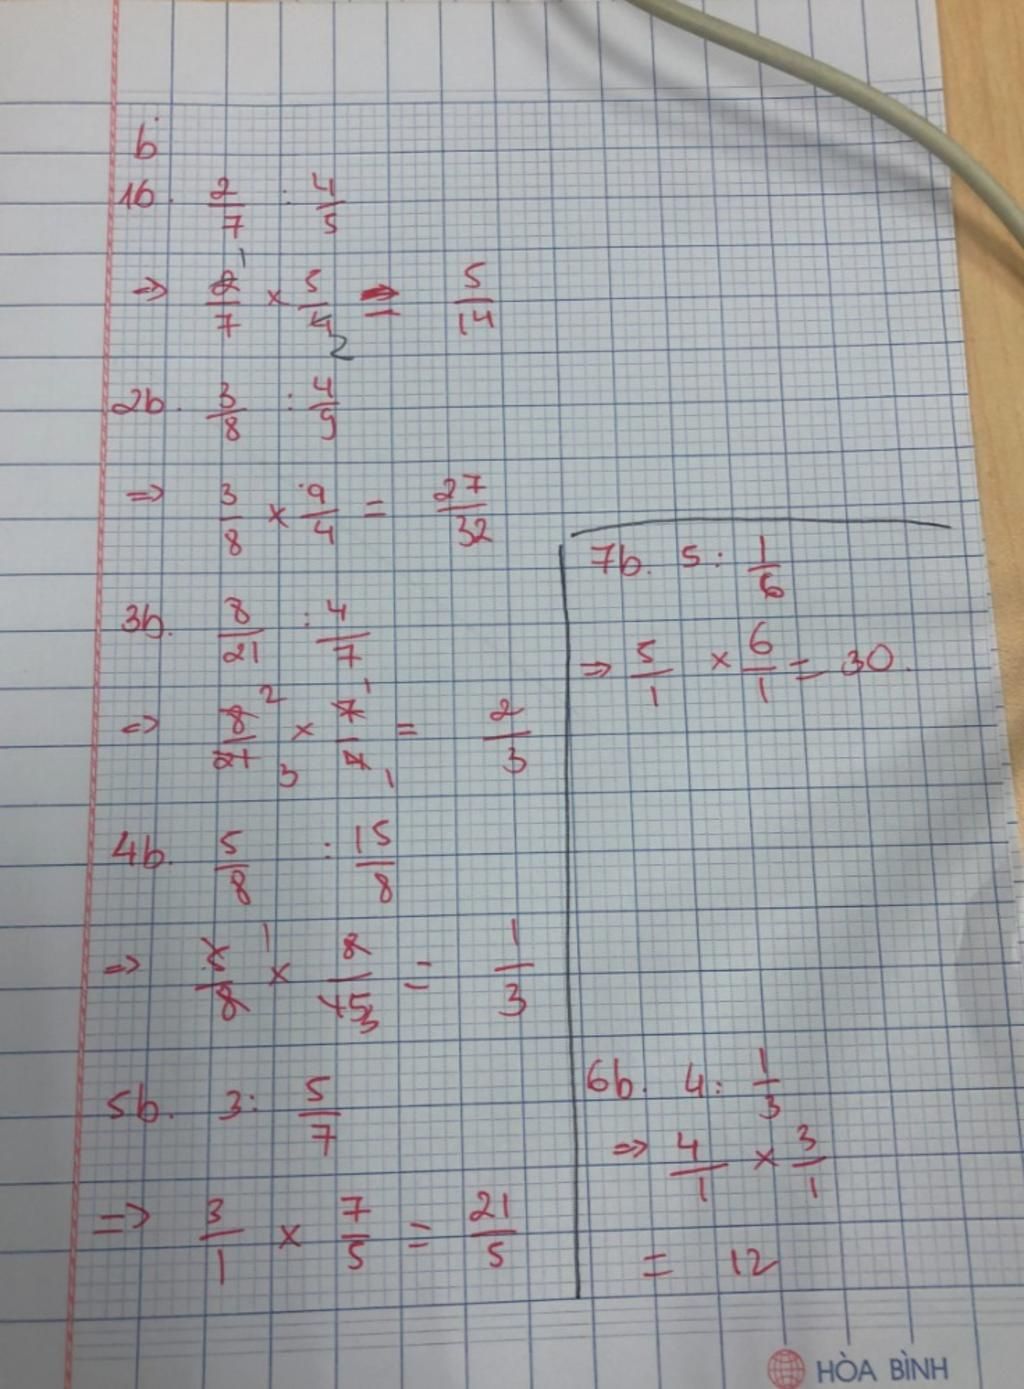 b
1b. 2/7 : 4/5
⇒ 2/7 1 × 5/4 2 = 5/14
2b. 3/8 : 4/9
⇒ 3/8 × 9/4 = 27/32
3b. 8/21 : 4/7
⇒ 8/21 2 3 × 7/4 1 1 = 2/3
4b. 5/8 : 15/8
⇒ 5/8 1 × 8/15 3 = 1/3
5b. 3 : 5/7
⇒ 3/1 × 7/5 = 21/5
7b. 5 : 1/6
⇒ 5/1 × 6/1 = 30.
6b. 4 : 1/3
⇒ 4/1 × 3/1
= 12
HÒA BÌNH